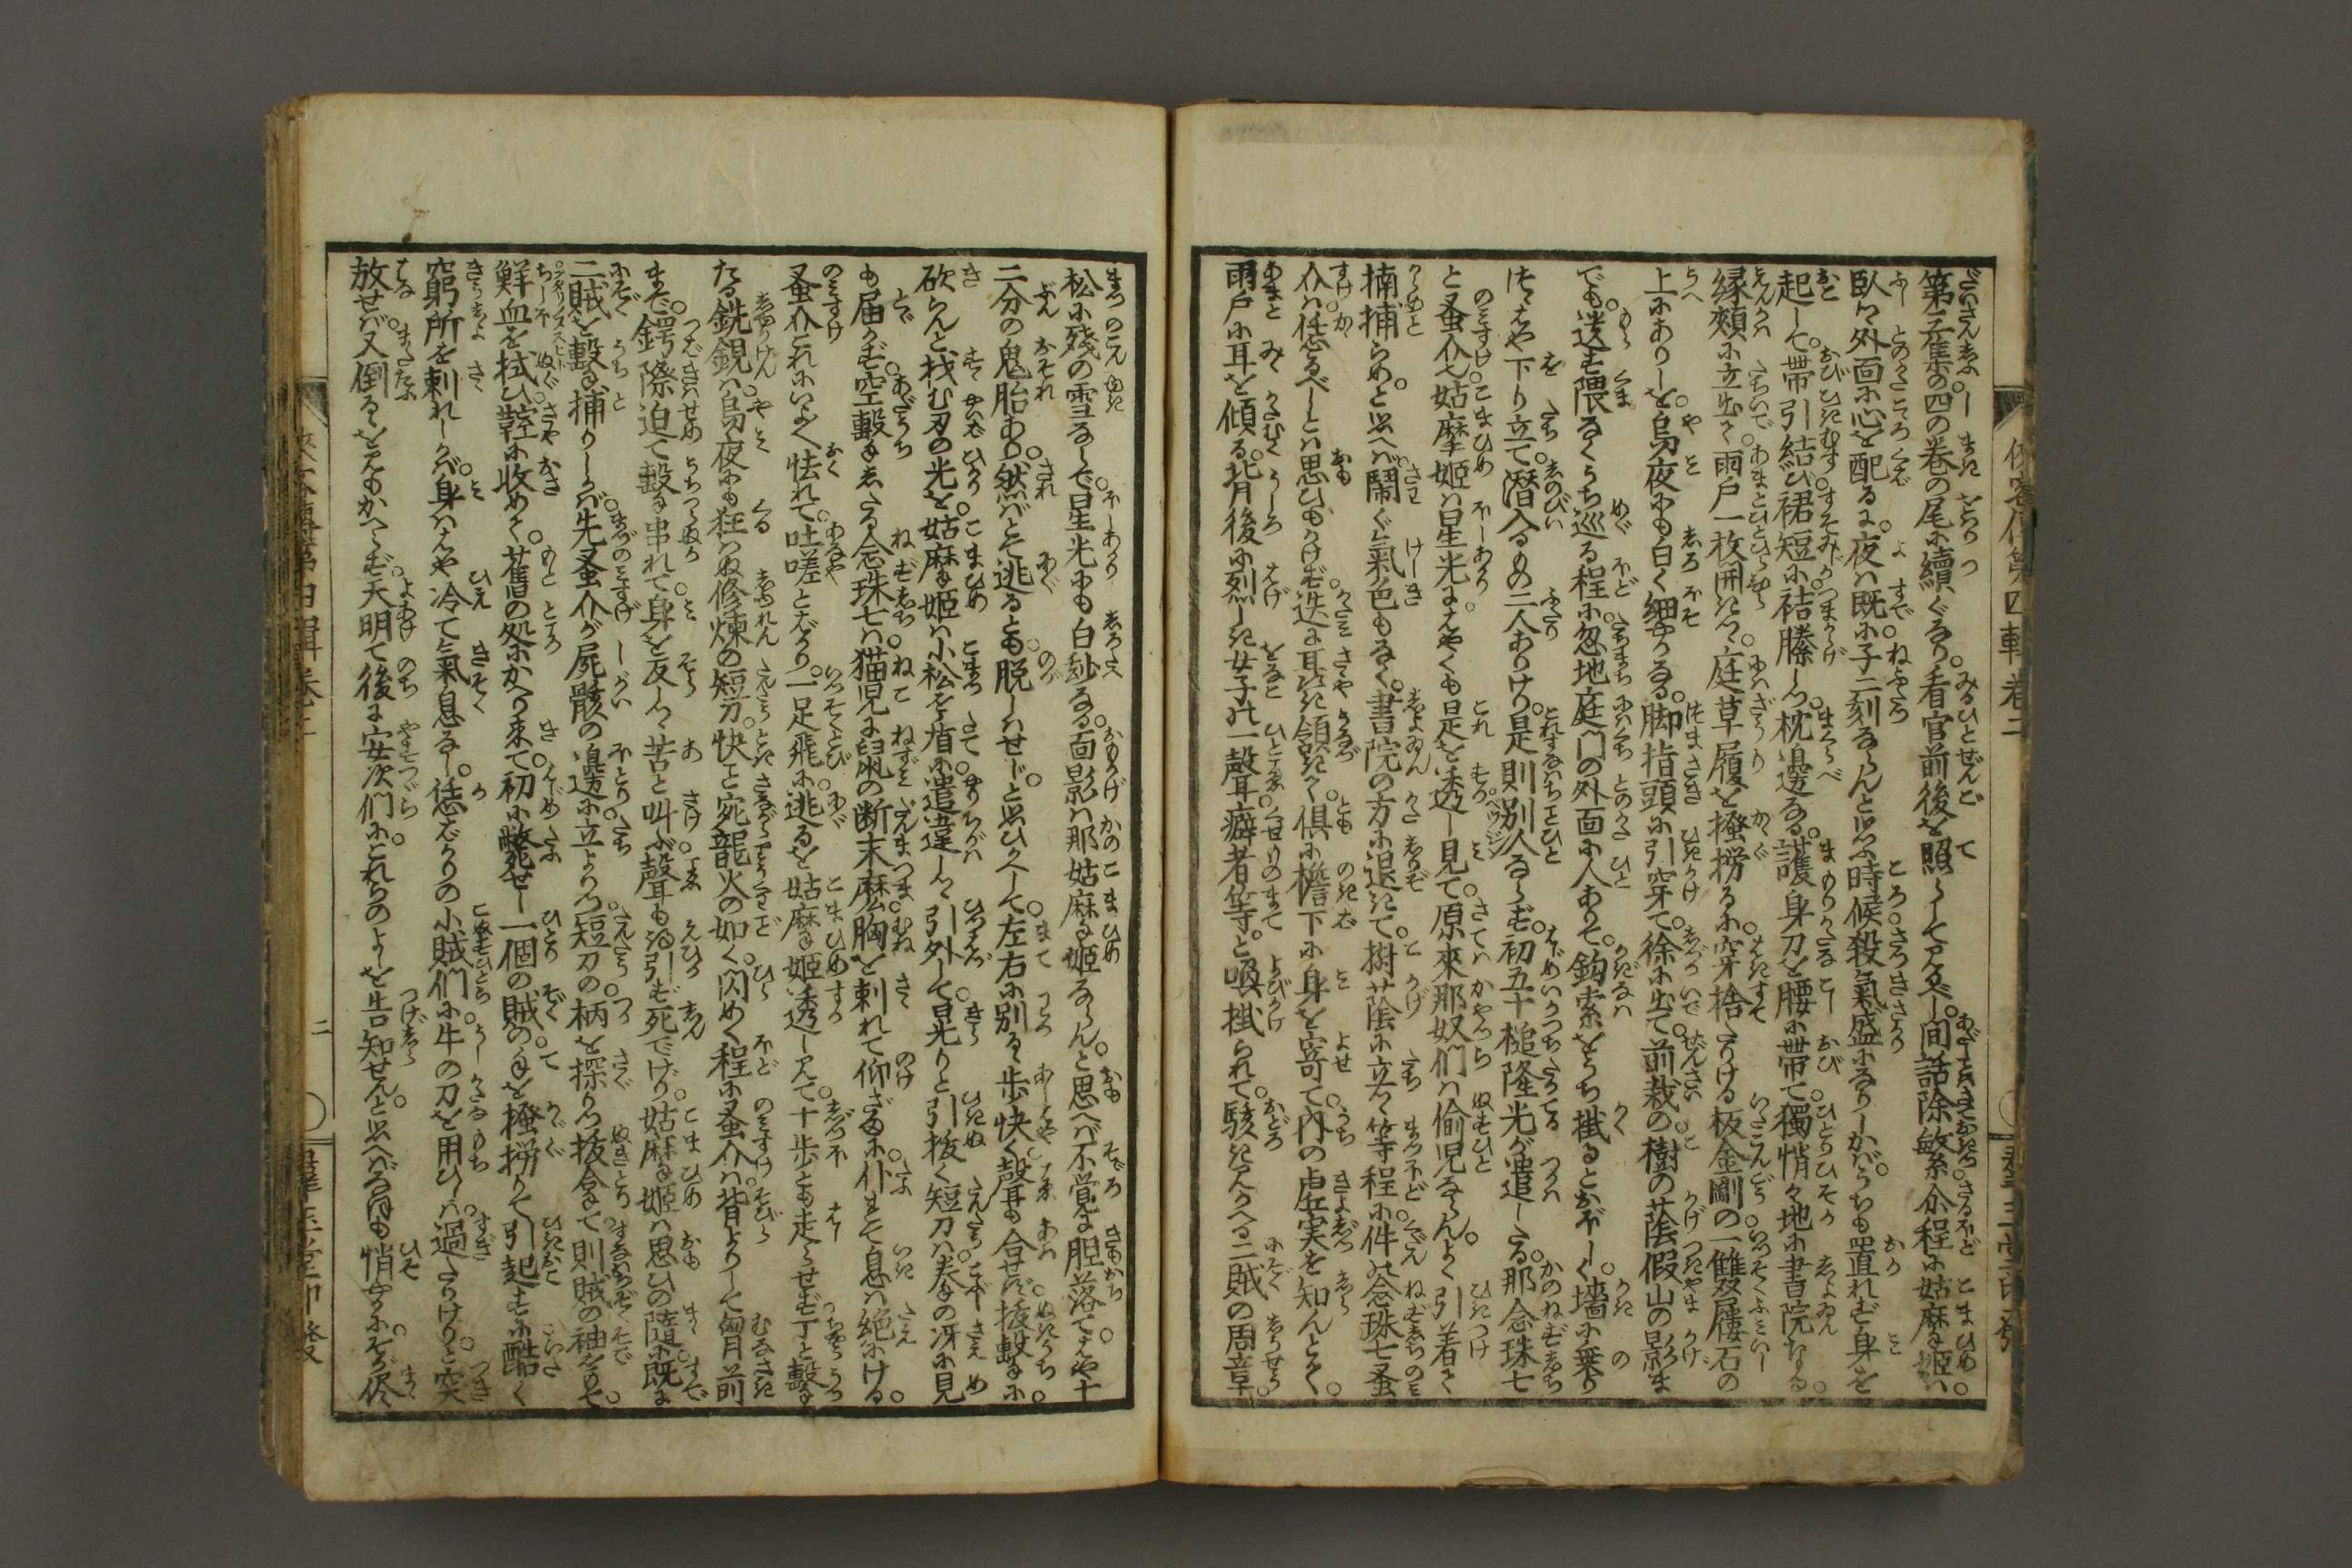 第三集の四の巻の尾に續ぐなり。看官前後を照らして見るべし。間話除煩。尒程に姑摩姫は。
臥ゝ外面に心を配るに。夜は既に子二刻ならんと思ふ時候殺氣盛になりしかば。うちも置れず身を
起して。帶引結び裙短に。褚縢しつ。枕邊なる。護身刀を腰に帶て。獨悄々地に書院なる。
縁頬に立出て。雨戸一枚開きつゝ。庭草履を掻撈るに。穿捨たりける板金剛の一雙履石の
上にありしを。烏夜にも白く細やかなる。脚指頭に引穿て。徐に出て。前栽の。樹の蔭假山の影ま
でも。送ず隈なくうち巡る程に。忽地庭門の外面に人ありて。鈎索をうち掛るとおぼしく。墻に乗り
つゝはや下り立て。潜入るもの二人ありけり。是則別人ならず。初五十槌隆光が遣したる。那念珠七
と蚤介也。姑摩姫は星光にはやくも是を透し見て。原來那奴們は偸児ならん。よく引着て
搦捕らめと思へば閙ぐ氣色もなく。書院の方に退きて。樹蔭に立て等程に。件の念珠七蚤
介は。恁るべしとは思ひもかけず。迭に耳き頷きて。倶に檐下に身を寄て。内の虚実を知んとて。
雨戸に耳を傾る。背後に烈しき女子の一聲。癖者等。と喚掛られて。駭き見かへる二賊の周章。
松に殘の雪ならで。星光にも白妙なる。面影は那姑摩姫ならん。と思へば不覚に胆落て。はや十
二分の鬼胎あり。然ばとて逃るとも。脱しはせじ。と思ひかへして。左右に別るゝ歩快く。聲も合せず抜撃に。
砍らんと找む刃の光を。姑摩姫は小松を盾に遣違しつゝ。引外して晃りと引抜く短刀は。拳の冴に見
も届かず。空撃をしたる念珠七は。猫児に鼠の断末麼。胸を刺れて仰ざまに。仆れて息は絶にける。
蚤介これにいよゝ怯れて。吐嗟とばかり。一足飛に。逃るを姑摩姫透し見て。十歩とも走らせず丁と撃
たる銑鋧は。烏夜にも狂はぬ修煉の短刀。快こと宛龍火の如く。閃めく程に蚤介は。背よりして匈前
まで。鍔際迫て撃串れて。身を反しつゝ苦と叫ぶ。聲も得引ず死でげり。姑摩姫は思ひの隨に。既に
二賊を撃捕りしかば。先蚤介が屍骸の邊に立よりつ。短刀の。柄を探りつ抜合て。則賊の袖をもて。
鮮血を拭ひ鞘に收めて。舊の処にかへり来て。初に斃せし一個の賊の。手を掻撈りて引起すに酷く
窮所を刺れしかば。身ははや冷て氣息なし。恁ばかりの小賊們に。牛の刀を用ひしは。過たりけり。と突
放せば。又倒るゝを見もかへらず。天明て後に安次們に。これらのよしを告知せん。と思へばなほも悄やかに。そが侭